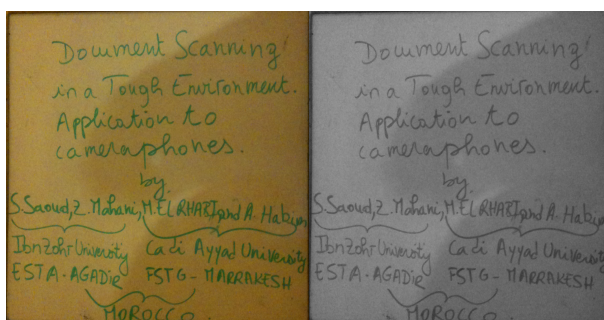 Document Scanning
in a Tough Environment.
Application to
cameraphones.
by
S. Saoud, Z. Mahani, M. EL RHABI, and A. Hakim
Ibn Zohr University
Cadi Ayyad University
ESTA - AGADIR
FSTG - MARRAKESH
MOROCCO.
Document Scanning
in a Tough Environment.
Application to
cameraphones.
by.
S. Saoud, Z. Mahani, M. EL RHABI, and A. Hakim
Ibn Zohr University
Cadi Ayyad University
ESTA - AGADIR
FSTG - MARRAKESH
MOROCCO.